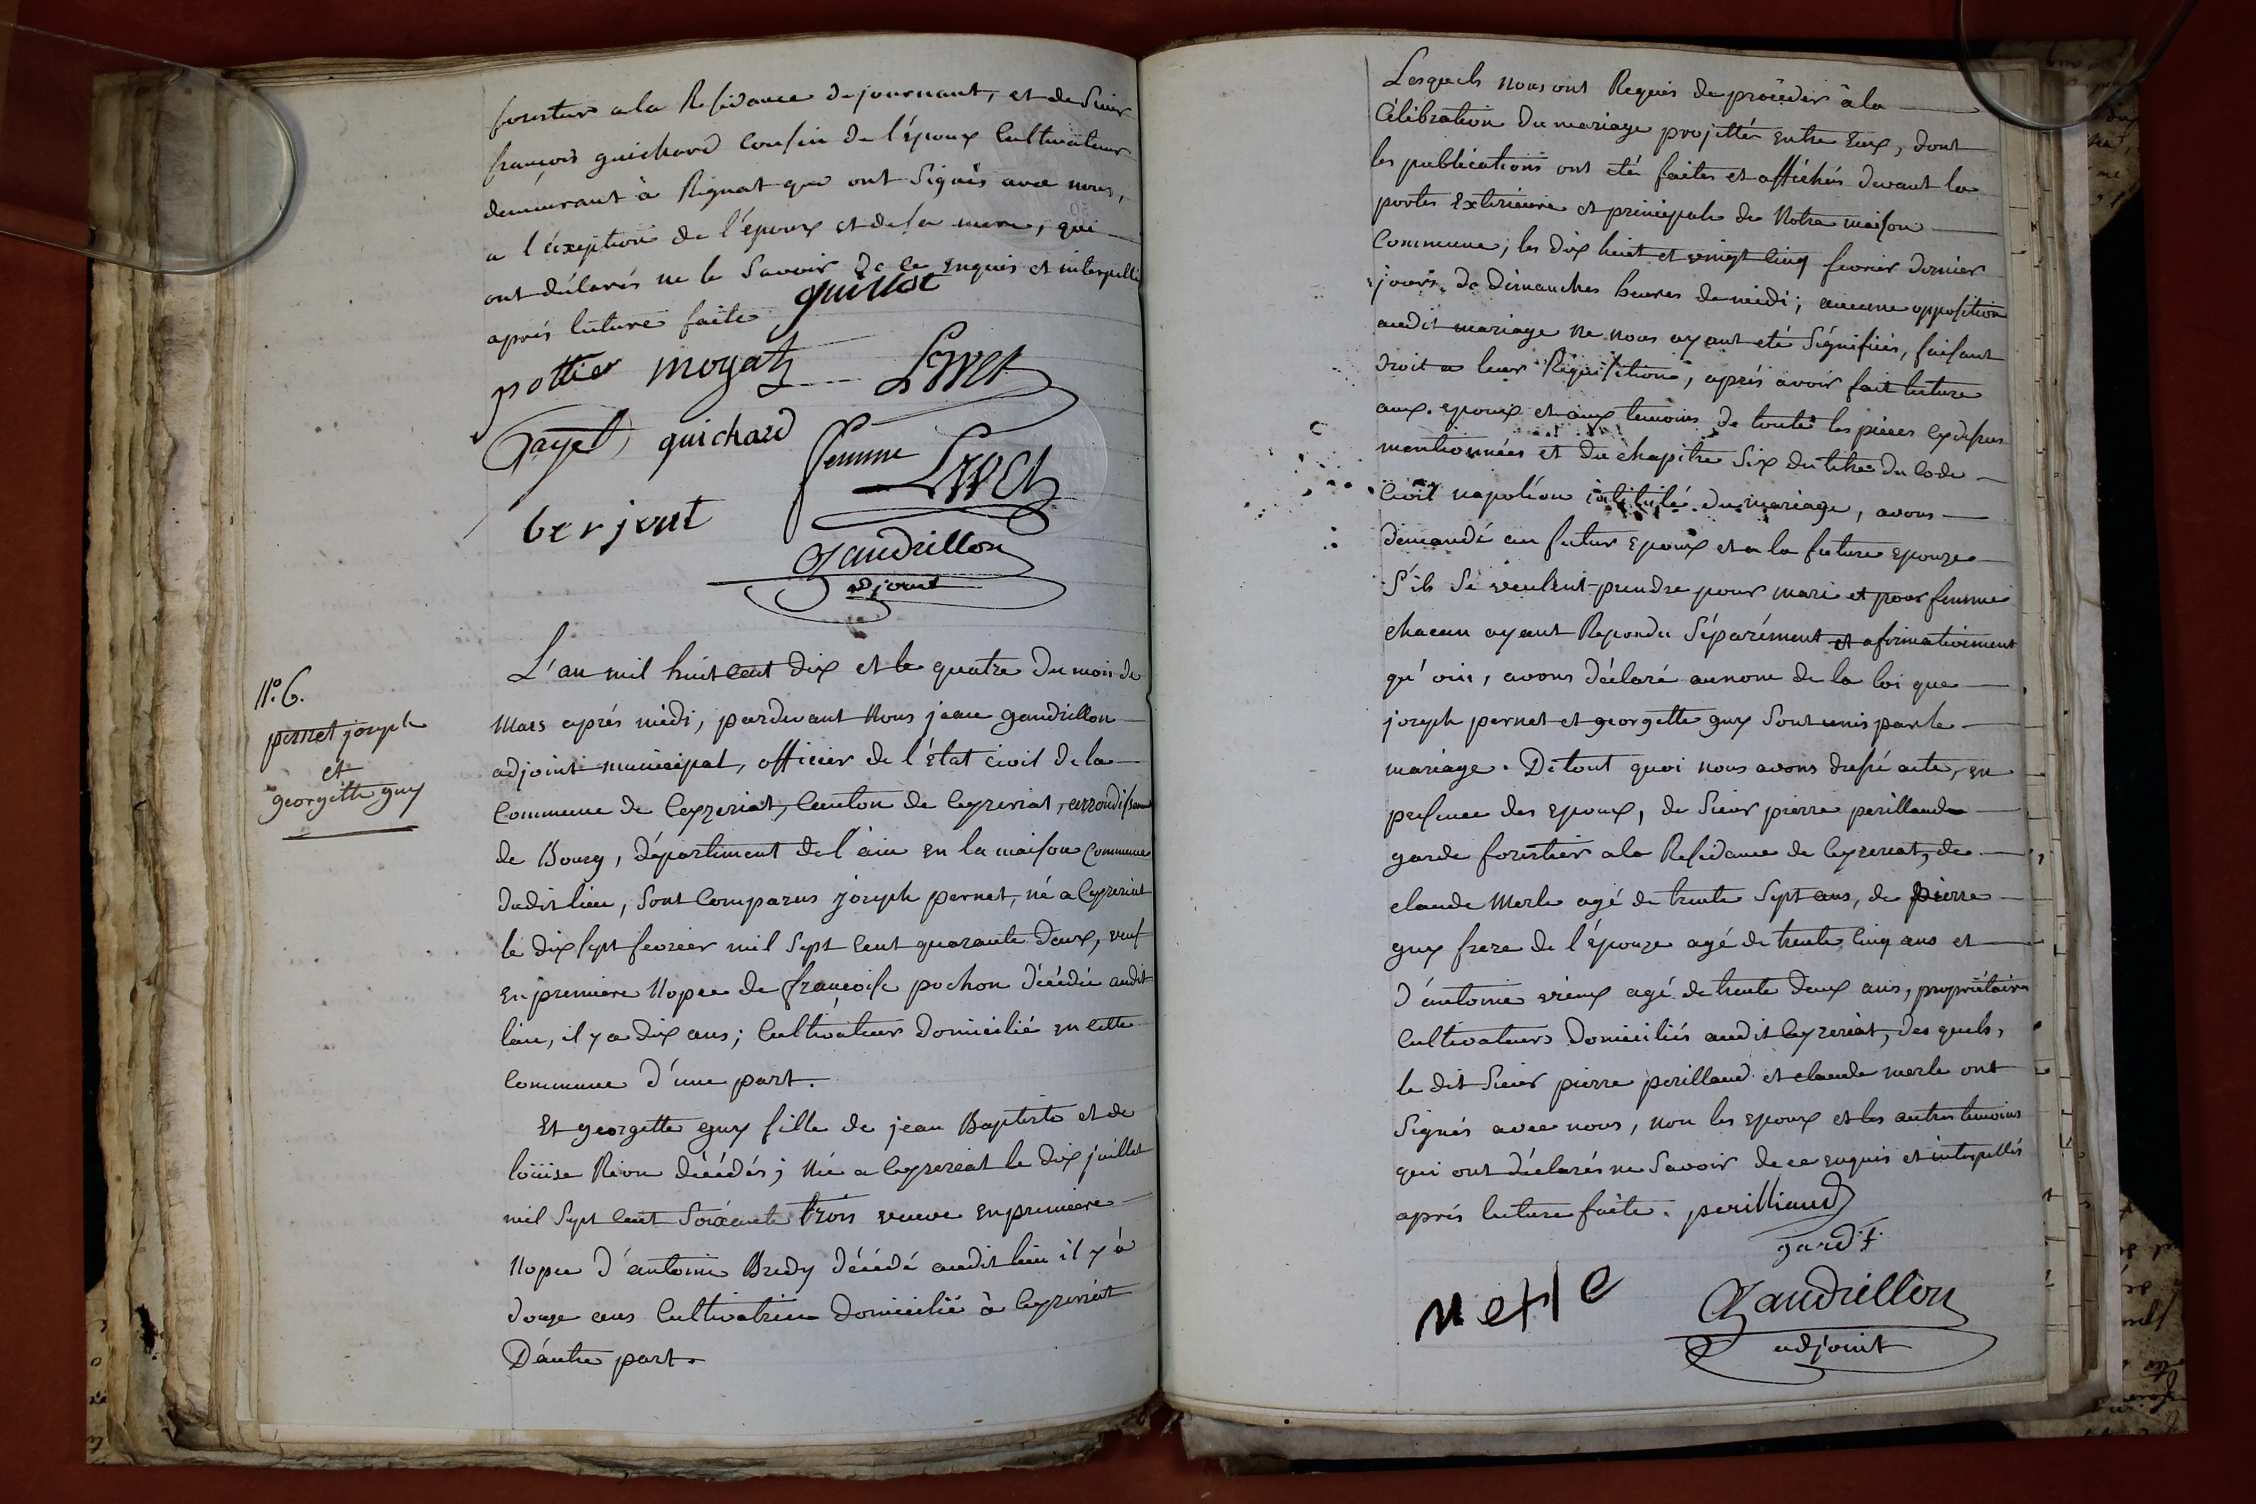 forestier a la Residance de journant, et de Sieur
françois guichard Cousin de l'époux Cultivateur
demeurant à Rignat qui ont Signés avec nous,
a l'éxeption de l'époux et de sa mere, qui
ont déclarés ne le Savoir de ce enquis et interpellé
aprés lecture faite guillot
pottier moyat Livet
Fayet guichard femme Livet
berjont
Gaudrillon
adjoint
N.º 6.
pernet joseph
et
georgette guy
L'an mil huit Cent dix et le quatre du mois de
Mars aprés midi, pardevant Nous jean gaudrillon
adjoint municipal, officier de l'état Civil de la
Commune de Ceyzeriat, Canton de Ceyzeriat, arrondissement
de Bourg, département de l'ain en la maison Commune
dudit lieu, sont Comparus joseph pernet, né a Ceyzeriat
le dix sept fevrier mil Sept Cent quarante deux, veuf
en premiere Nopce de françoise pochon décédée audit
lieu, il y a dix ans; Cultivateur domicilié en Cette
Commune d'une part.
Et georgette guy fille de jean Baptiste et de
loüise Rion décédés; Née a Ceyzeriat le dix juillet
mil Sept Cent Soixante trois veuve en premiere
Nopce d'antoine Bredy décédé audit lieu il y a
douze ans Cultivatrice domicilié à Ceyzeriat
D'autre part.
Lesquels nous ont Requis de procéder à la
Célébration du mariage projetté entre Eux, dont
les publications ont été faites et affichés devant la
portes Exterieure et principale de Notre maison
Commune, les dix huit et vingt Cinq fevrier dernier
jours de dimanches heures de midi; aucune opposition
audit mariage ne nous ayant eté Signifiée, faisant
droit a leur Réquisition, aprés avoir fait lecture
aux epoux et aux temoins de toute les pièces Cydesus
mentionnées et du chapitre Six du titre du Code
Civil napoléon intitulé du mariage, avons
demandé au futur Epoux et a la future epouze
S'ils Se veulent prendre pour mari et pour femme
chacun ayant Repondu Séparément et afirmativement
qu'oui, avons déclaré au nom de la loi que
joseph pernet et georgette guy Sont unis par le
mariage. De tout quoi nous avons dressé acte, en
presence des epoux, de Sieur pierre perillaud
garde forestier a la Residance de Ceyzeriat, de
claude Merle agé de trente Sept ans, de pierre
guy frere de l'épouze agé de trente Cinq ans et
d'antoine vieux agé de trente deux ans, propriétaires
Cultivateurs domiciliés audit Ceyzeriat, des quels,
le dit Sieur pierre perillaud et claude merle ont
Signés avec nous, non les epoux et les autres temoins
qui ont déclarés ne Savoir de ce enquis et interpellés
aprés lecture faite. perilliaud
gard f.
merle Gaudrillon
adjoint